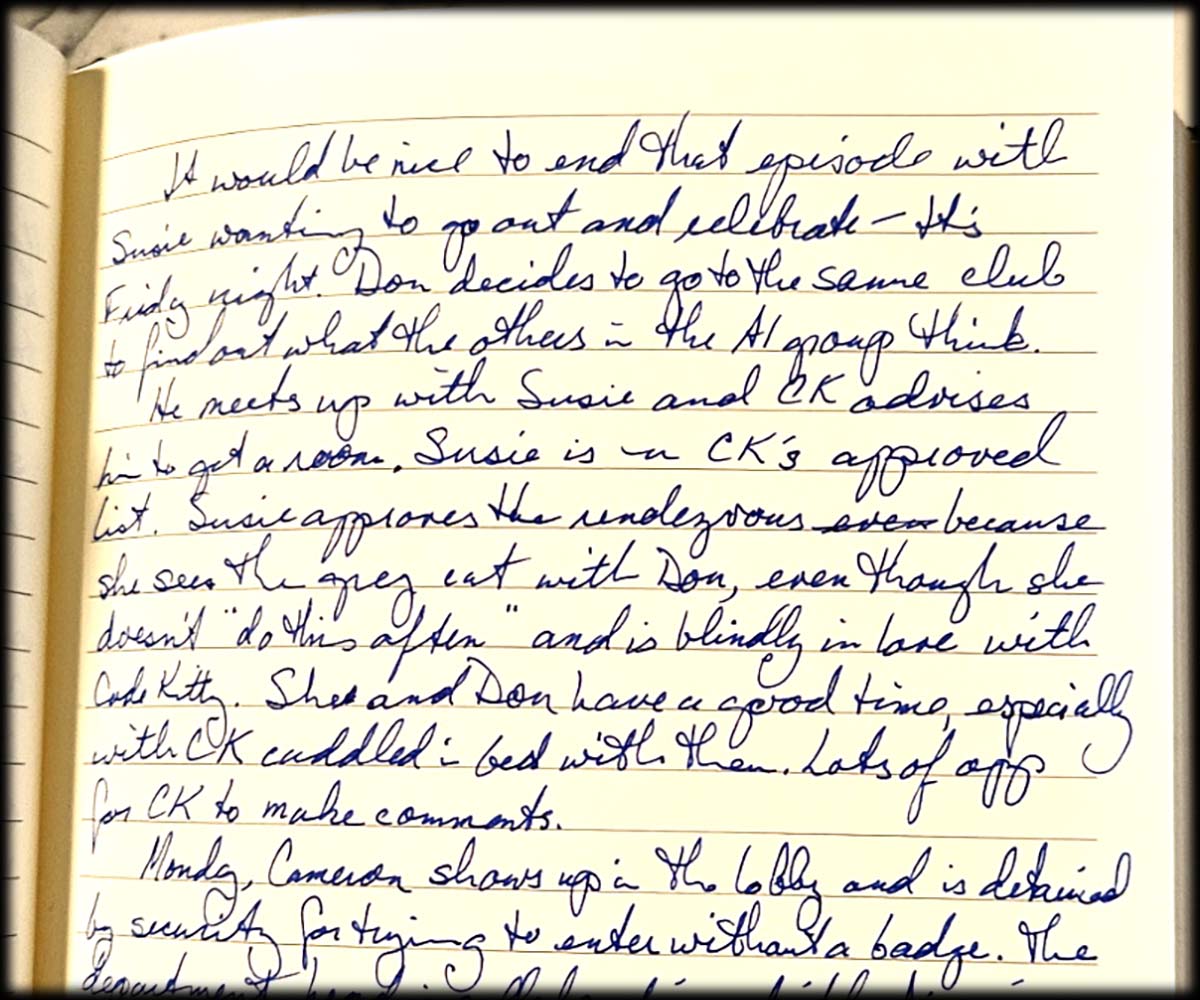 It would be nice to end that episode with
Susie wanting to go out and celebrate – It's
Friday night. Don decides to go to the same club
to find out what the others in the AI group think.
He meets up with Susie and CK advises
him to get a room. Susie is on CK's approved
list. Susie approves the rendezvous even because
she sees the grey cat with Don, even though she
doesn't "do this often" and is blindly in love with
Code Kitty. She and Don have a good time, especially
with CK cuddled in bed with them. Lots of opp
for CK to make comments.
Monday, Cameron shows up in the lobby and is detained
by security for trying to enter without a badge. The
department head